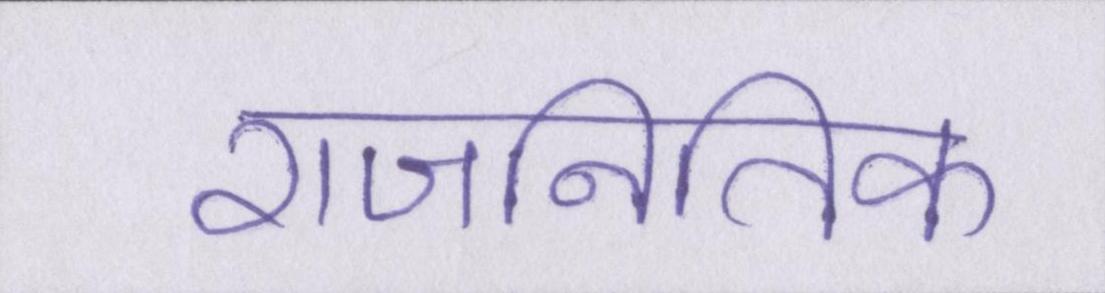 राजनितिक